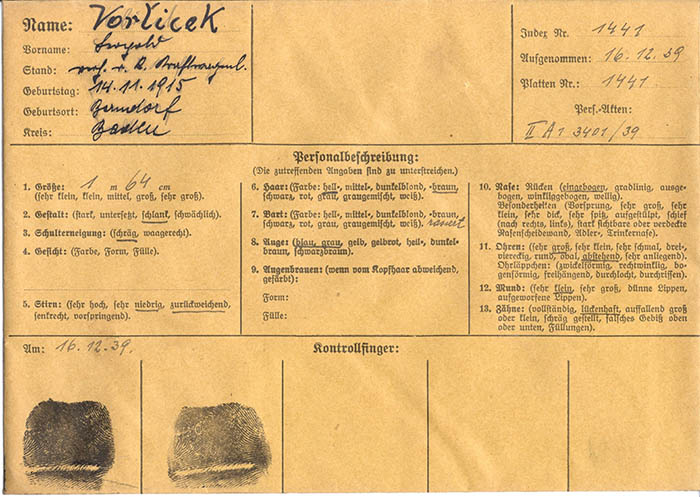 Name: Vorlicek
Vorname: Leopold
Stand: verh. Kraftwagenl.
Geburtstag: 14.11.1915
Geburtsort: Berndorf
Kreis: Baden
Index Nr. 1441
Aufgenommen: 16.12.39
Platten Nr.: 1441
Pers.-Akten:
II A1 3401/39
Personalbeschreibung:
(Die zutreffenden Angaben sind zu unterstreichen.)
1. Größe: 1 m 64 cm
(sehr klein, klein, mittel, groß, sehr groß).
2. Gestalt: (stark, untersetzt, schlank, schwächlich).
3. Schulterneigung: (schräg, waagerecht).
4. Gesicht: (Farbe, Form, Fülle).
5. Stirn: (sehr hoch, sehr niedrig, zurückweichend,
senkrecht, vorspringend).
6. Haar: (Farbe: hell-, mittel-, dunkelblond, -braun,
schwarz, rot, grau, graugemischt, weiß).
7. Bart: (Farbe: hell-, mittel-, dunkelblond, -braun,
schwarz, rot, grau, graugemischt, weiß). rasiert
8. Auge: (blau, grau, gelb, gelbrot, hell-, dunkel-
braun, schwarzbraun).
9. Augenbrauen: (wenn vom Kopfhaar abweichend,
gefärbt):
Form:
Fülle:
10. Nase: Rücken (eingebogen, gradlinig, ausge-
bogen, winkliggebogen, wellig).
Besonderheiten (Vorsprung, sehr groß, sehr
klein, sehr dick, sehr spitz, aufgestülpt, schief
(nach rechts, links), stark sichtbare oder verdeckte
Nasenscheidewand, Adler-, Trinkernase).
11. Ohren: (sehr groß, sehr klein, sehr schmal, drei-,
viereckig, rund, oval, abstehend, sehr anliegend).
Ohrläppchen: (zwickelförmig, rechtwinklig, bo-
genförmig, freihängend, durchlocht, durchrissen).
12. Mund: (sehr klein, sehr groß, dünne Lippen,
aufgeworfene Lippen).
13. Zähne: (vollständig, lückenhaft, auffallend groß
oder klein, schräg gestellt, falsches Gebiß oben
oder unten, Füllungen).
Am: 16.12.39.
Kontrollfinger: